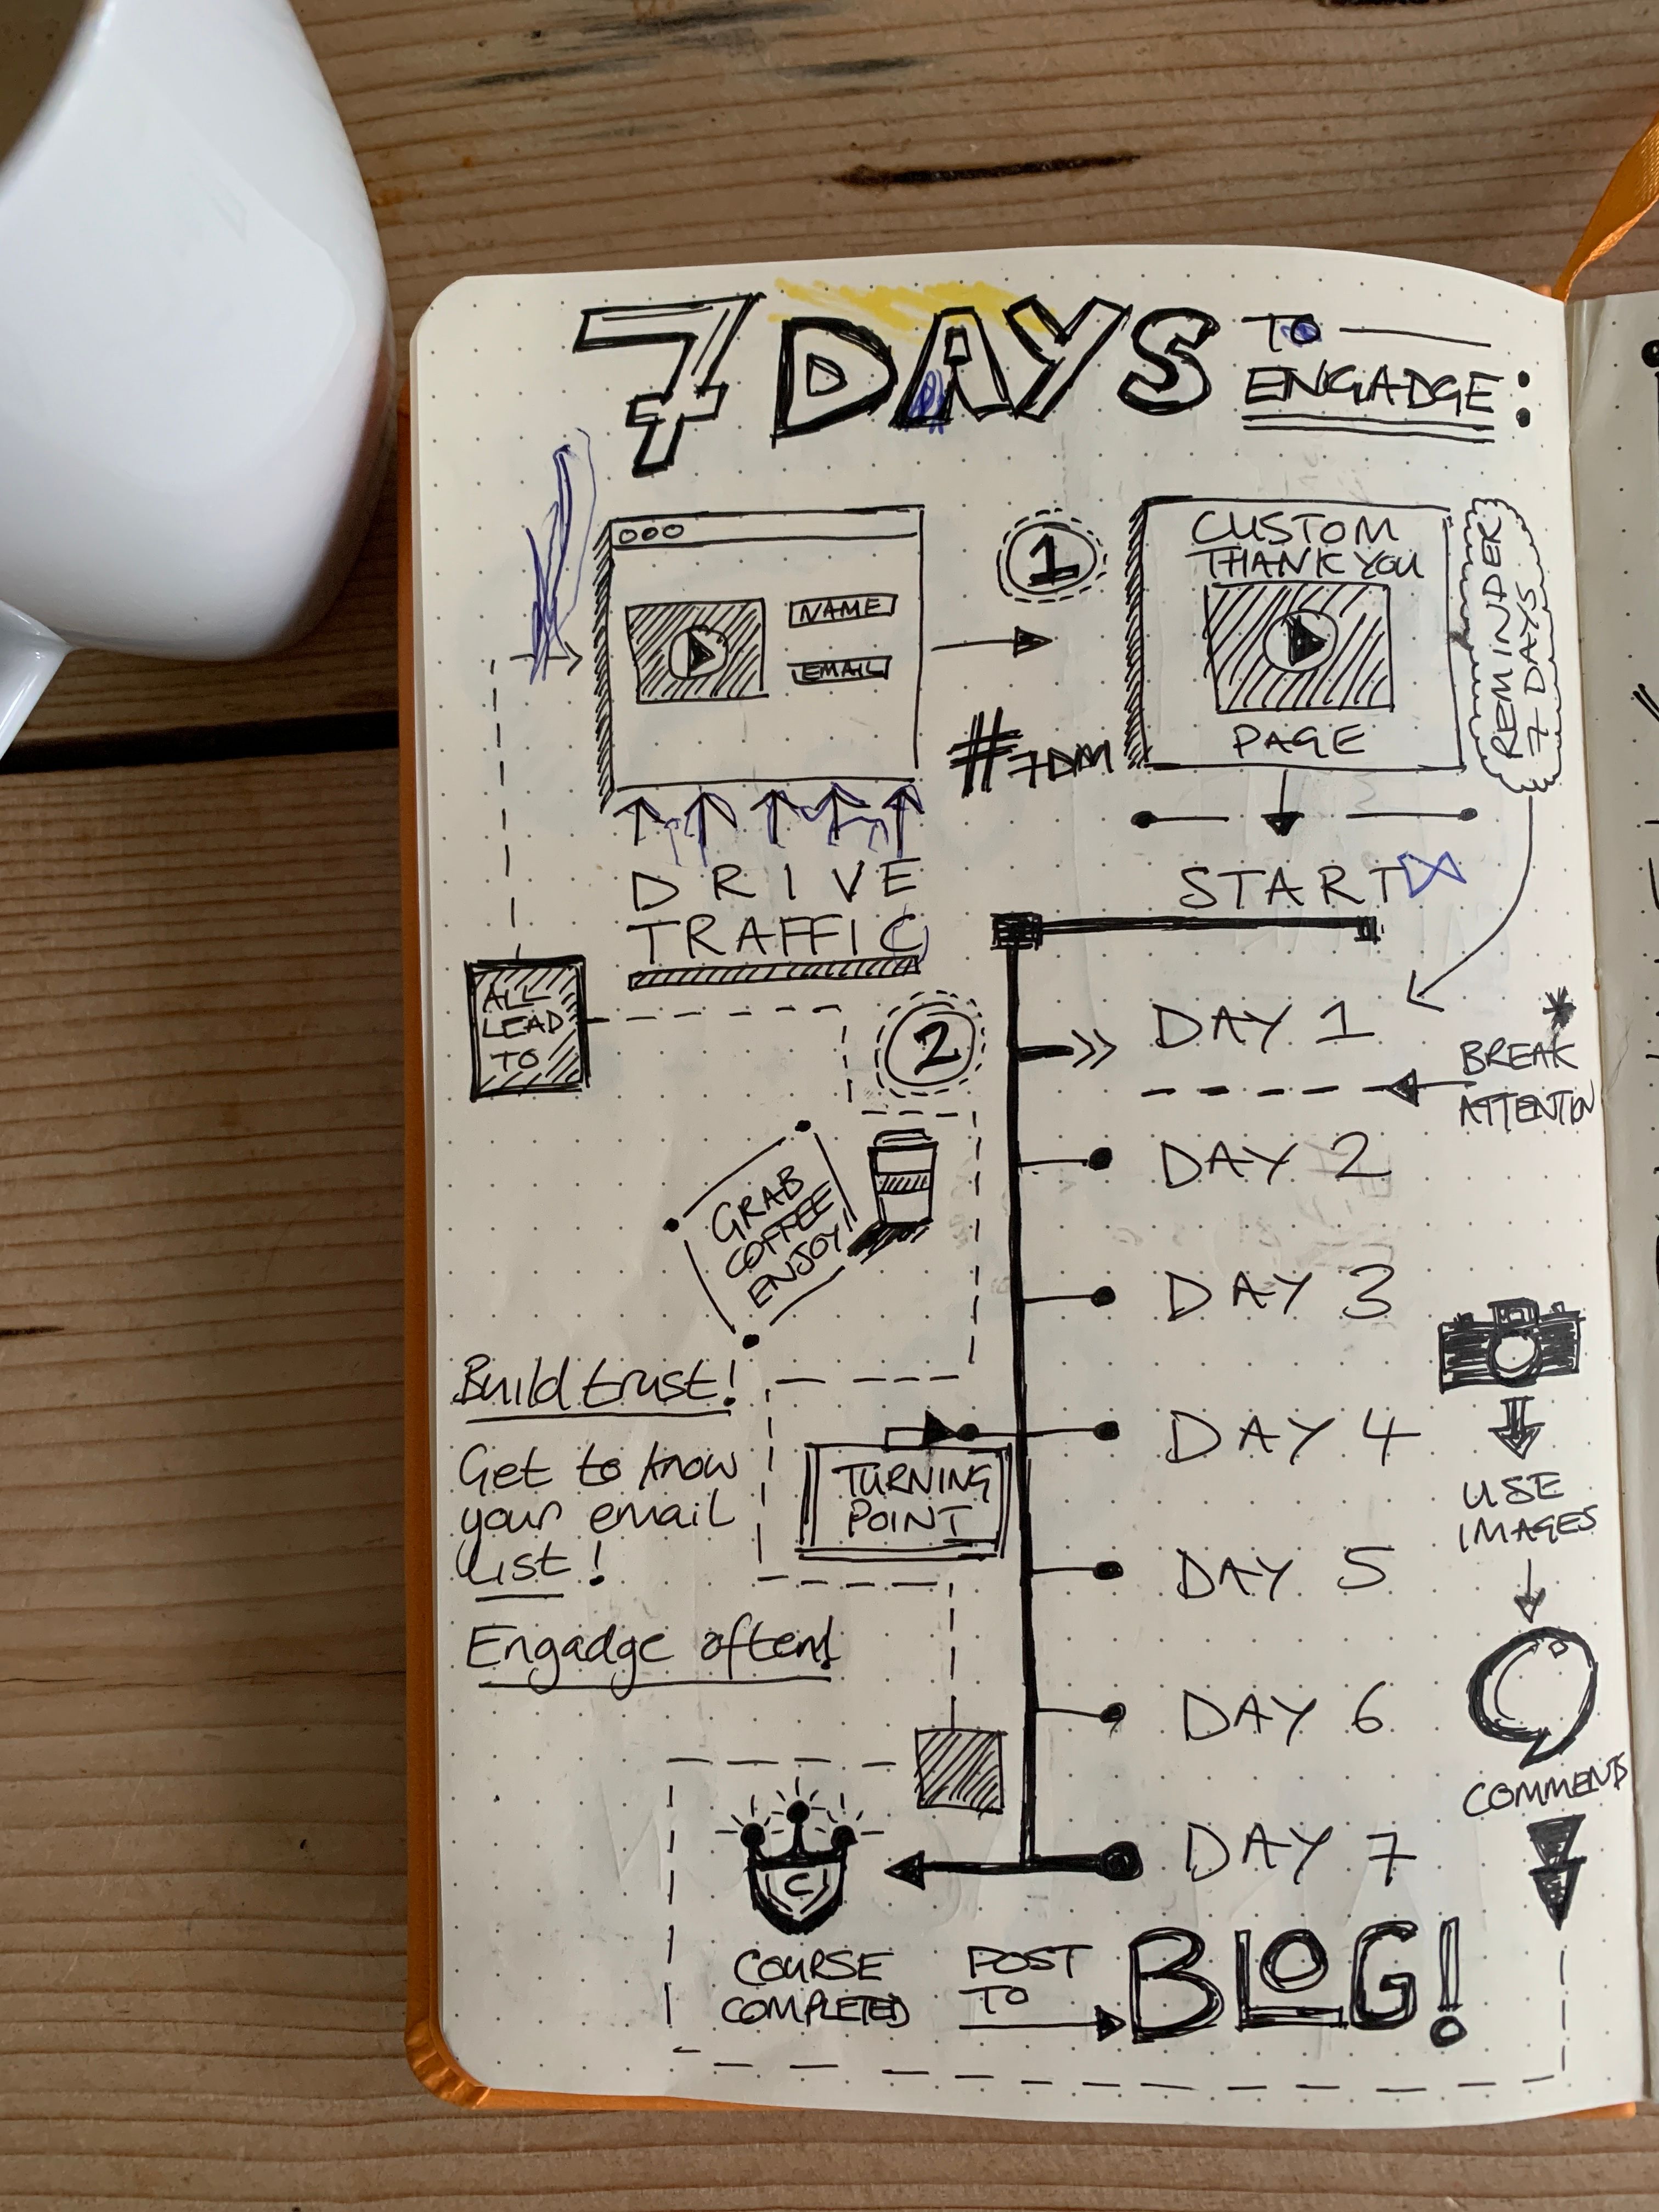 7 DAYS TO
ENGADGE:
NAME
EMAIL
1
CUSTOM
THANK YOU
PAGE
REMINDER
7 DAYS
#7DM
DRIVE
TRAFFIC
START
ALL
LEAD
TO
2
DAY 1
*
BREAK
ATTENTION
DAY 2
GRAB
COFFEE
ENJOY!
DAY 3
Build trust!
Get to know
your email
list!
Engadge often!
TURNING
POINT
DAY 4
USE
IMAGES
DAY 5
DAY 6
COMMENTS
DAY 7
C
COURSE
COMPLETED
POST
TO
BLOG!